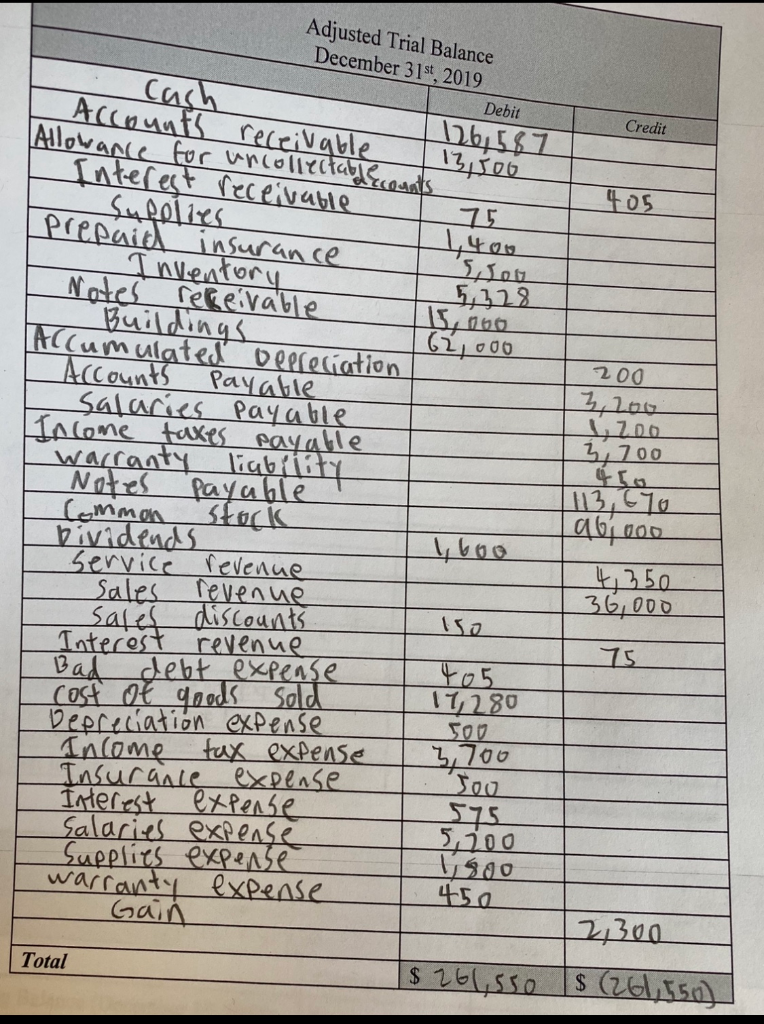 Adjusted Trial Balance
December 31st, 2019
Debit Credit
Cash 126,587
Accounts receivable 13,500
Allowance for uncollectable accounts 405
Interest receivable 75
Supplies 1,400
prepaid insurance 5,500
Inventory 5,328
Notes receivable 15,000
Buildings 62,000
Accumulated Depreciation 200
Accounts Payable 3,200
Salaries payable 1,200
Income taxes payable 3,700
warranty liability 450
Notes payable 113,670
Common stock 96,000
Dividends 1,600
Service revenue 4,350
Sales revenue 36,000
Sales discounts 150
Interest revenue 75
Bad debt expense 405
cost of goods sold 17,280
Depreciation expense 500
Income tax expense 3,700
Insurance expense 500
Interest expense 575
Salaries expense 5,200
Supplies expense 1,800
warranty expense 450
Gain 2,300
Total $ 261,550 $ (261,550)